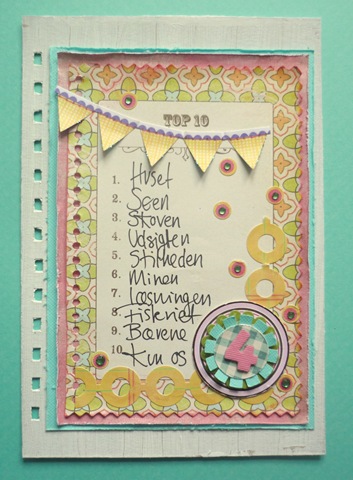 TOP 10
1. Huset
2. Søen
3. Skoven
4. Udsigten
5. Stilheden
6. Minen
7. Læsningen
8. Fiskeriet
9. Bævene
10. Kun os
4